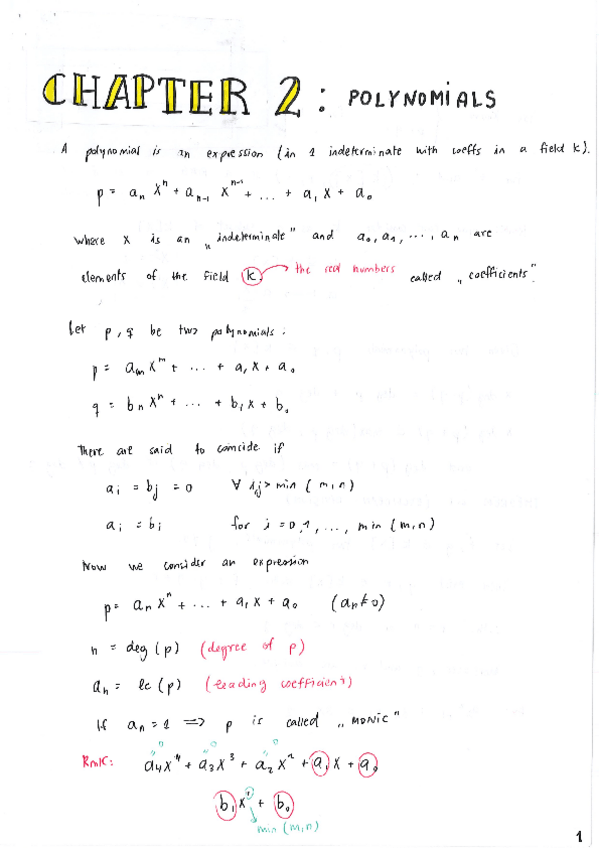 CHAPTER 2: POLYNOMIALS
A polynomial is an expression (in 1 indeterminate with coeffs in a field k).
p = aₙ xⁿ + aₙ₋₁ xⁿ⁻¹ + ... + a₁ x + a₀
where x is an „indeterminate" and a₀, a₁, ..., aₙ are
elements of the field k → the real numbers called „coefficients".
Let p, q be two polynomials:
p = aₘ xᵐ + ... + a₁ x + a₀
q = bₙ xⁿ + ... + b₁ x + b₀
There are said to coincide if
aᵢ = bⱼ = 0 ∀ i,j > min (m,n)
aᵢ = bᵢ for i = 0,1, ..., min (m,n)
Now we consider an expression
p = aₙ xⁿ + ... + a₁ x + a₀ (aₙ ≠ 0)
n = deg (p) (degree of p)
aₙ = lc (p) (leading coefficient)
If aₙ = 1 ⟹ p is called „MONIC"
0 0 0
Rmk: a₄x⁴ + a₃x³ + a₂x² + a₁x + a₀
b₁x¹ + b₀
min (m,n)
1